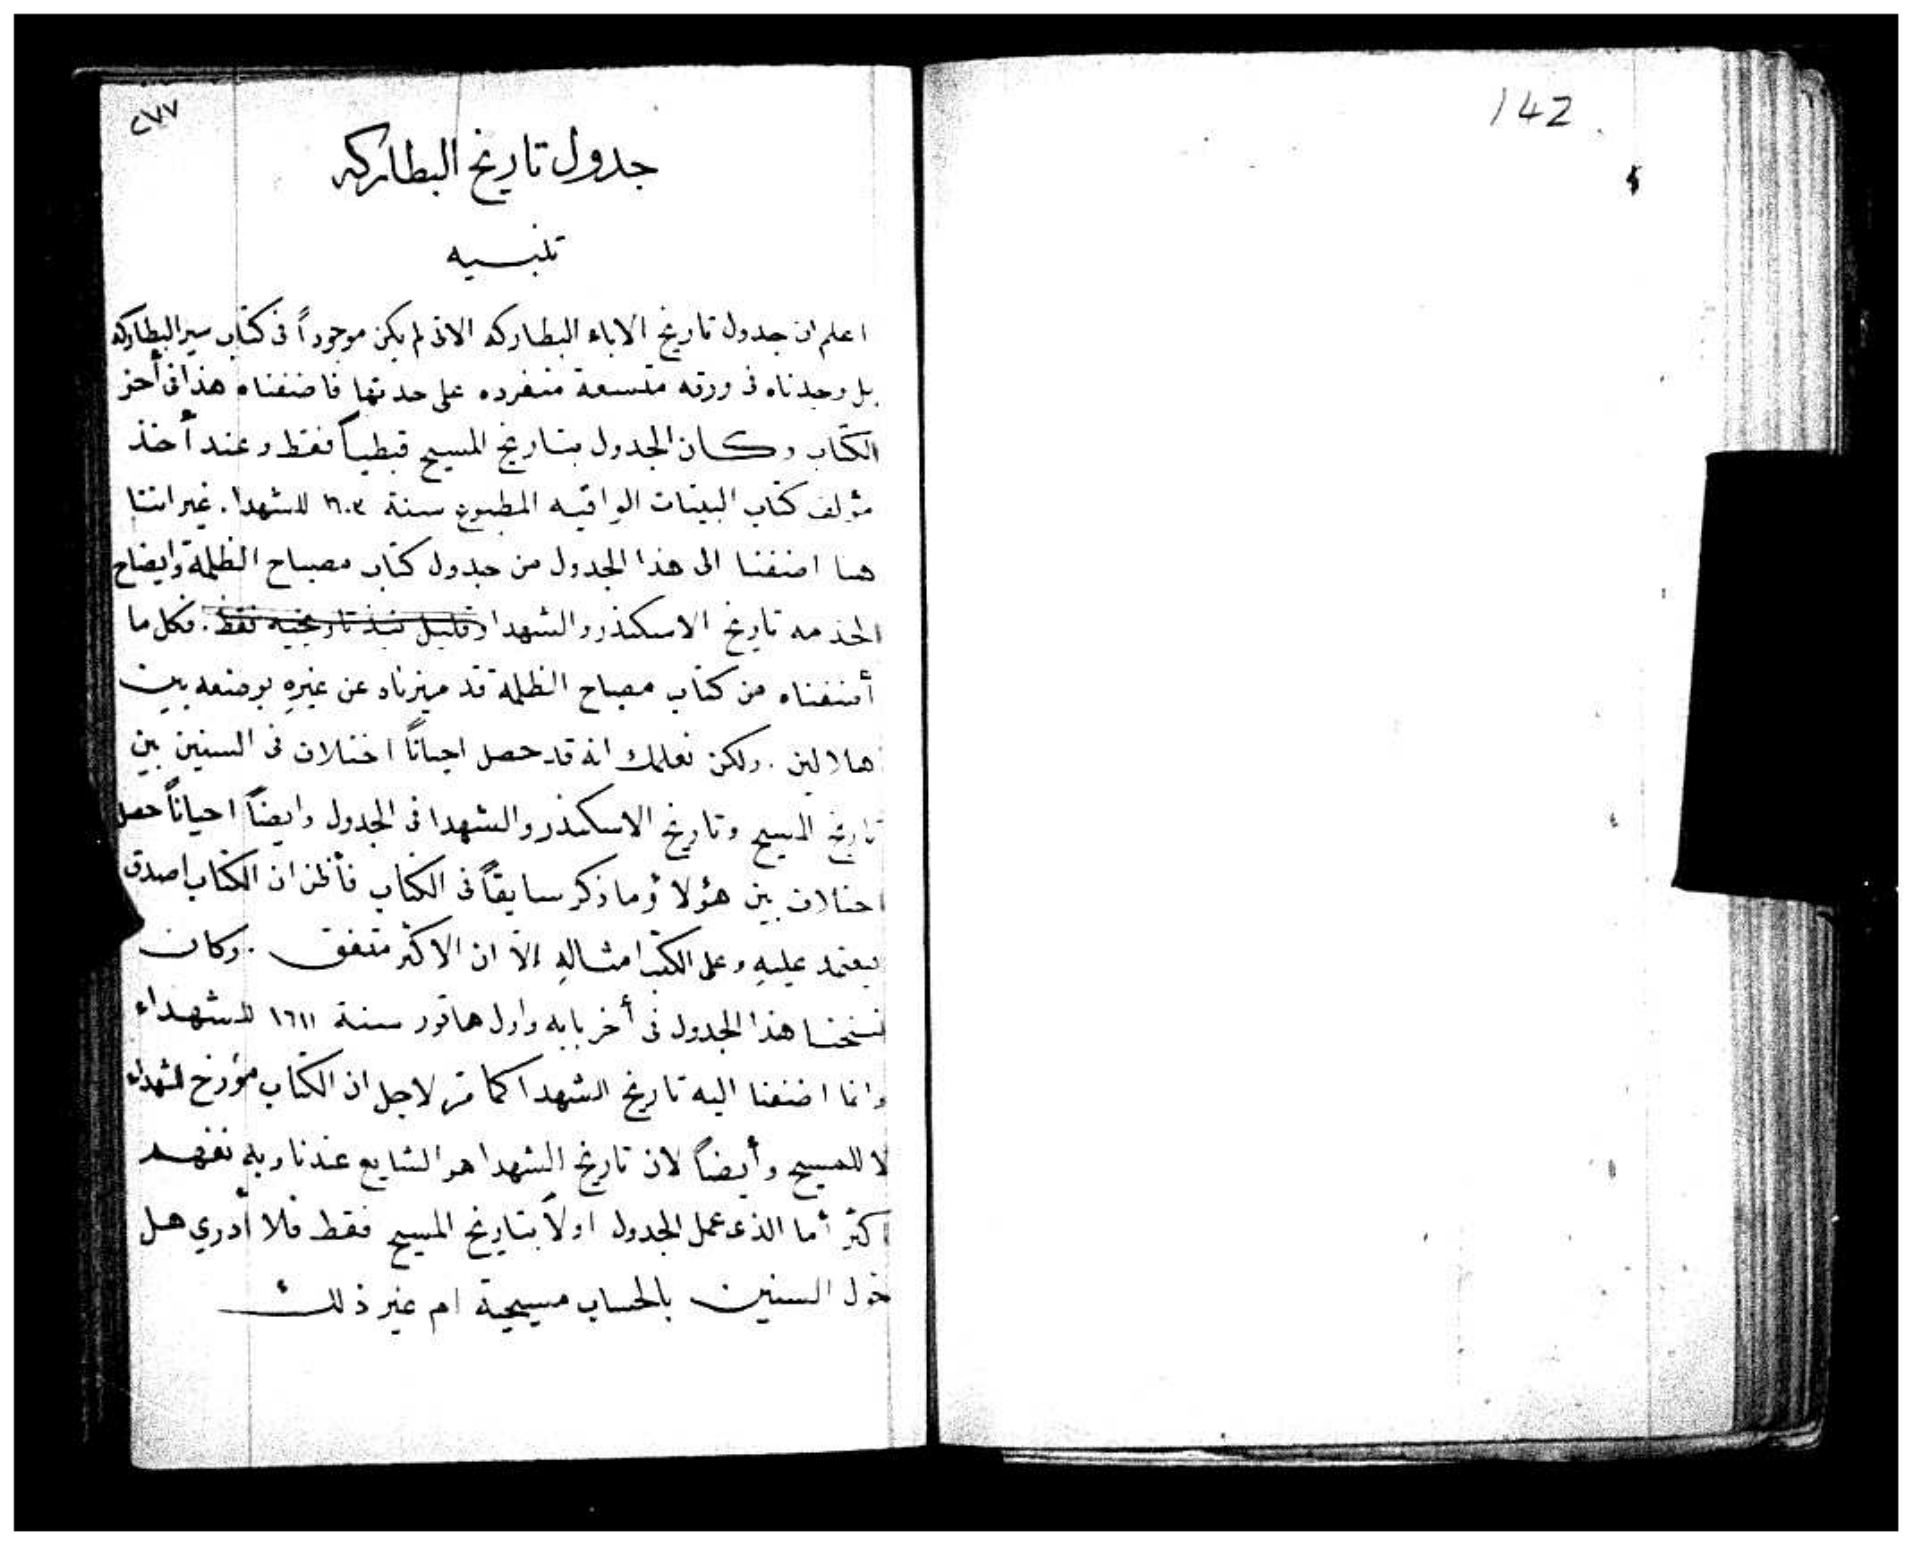 142
٢٧٧
جدول تاريخ البطاركه
تنبيه
اعلم ان جدول تاريخ الاباء البطاركه الاتى لم يكن موجوداً فى كتاب سير البطاركه
بل وجدناه فى ورقه متسعة منفرده على حدتها فاضفناه هذا فى أخر
الكتاب وكان الجدول بتاريخ المسيح قبطياً فقط وعند أخذ
مؤلف كتاب البينات الوافيه المطبوع سنة ١٦٠٣ للشهدا. غير اننا
هنا اضفنا الى هذا الجدول من جدول كتاب مصباح الظلمة وايضاح
الخدمه تاريخ الاسكندر والشهدا وقليل نبذ تاريخيه فقط. فكل ما
أضفناه من كتاب مصباح الظلمة قد ميزناه عن غيرهِ بوضعه بين
هلالين. ولكن نعلمك انه قد حصل احياناً اختلاف فى السنين بين
تاريخ المسيح وتاريخ الاسكندر والشهدا فى الجدول وايضاً احياناً حصل
اختلاف بين هؤلا وما ذكر سابقاً فى الكتاب فأظن ان الكتاب اصدق
يعتمد عليهِ وعلى الكتب امثالهِ الاّ ان الاكثر متفق. وكان
نسخنا هذا الجدول فى أخر بابه واول هاتور سنة ١٦١١ للشهداء
وانما اضفنا اليه تاريخ الشهدا كما مرّ لاجل ان الكتاب مؤرخ للشهداء
لا للمسيح وأيضاً لان تاريخ الشهدا هو الشايع عندنا وبهِ نفهم
اكثر أما الذى عمل الجدول اولاً بتاريخ المسيح فقط فلا أدري هل
حول السنين بالحساب مسيحية ام غير ذلك